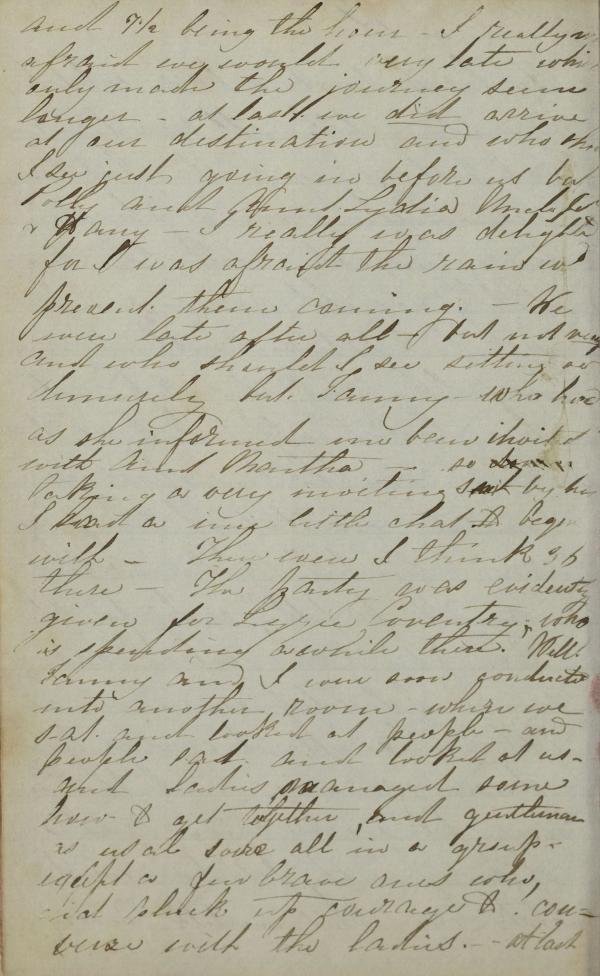 and 7 1/2 being the hour - I really
afraid we would very late
only made the journey seem
longer - at last we did arrive
at our destination and who
I see just going in before us but
Polly and Aunt Lydia Uncle
& Hany - I really was delighted
for I was afraid the rain
prevent them coming. - We
were late after all - but not very
and who should I see sitting
demurely but Fanny - who had
as she informed me been invited
with Aunt Martha - so
taking a very inviting seat by her
I had a nice little chat to begin
with - There were I think 36
there - The party was evidently
given for Lizzie Coventry, who
is spending awhile there. Well
Fanny and I were soon conducted
into another room - where we
sat and looked at people - and
people sat and looked at us -
and Ladies managed some
how to get together, and gentlemen
as usual were all in a group -
exept a few brave ones who,
did pluck up courage to con=
verse with the ladies. - at last